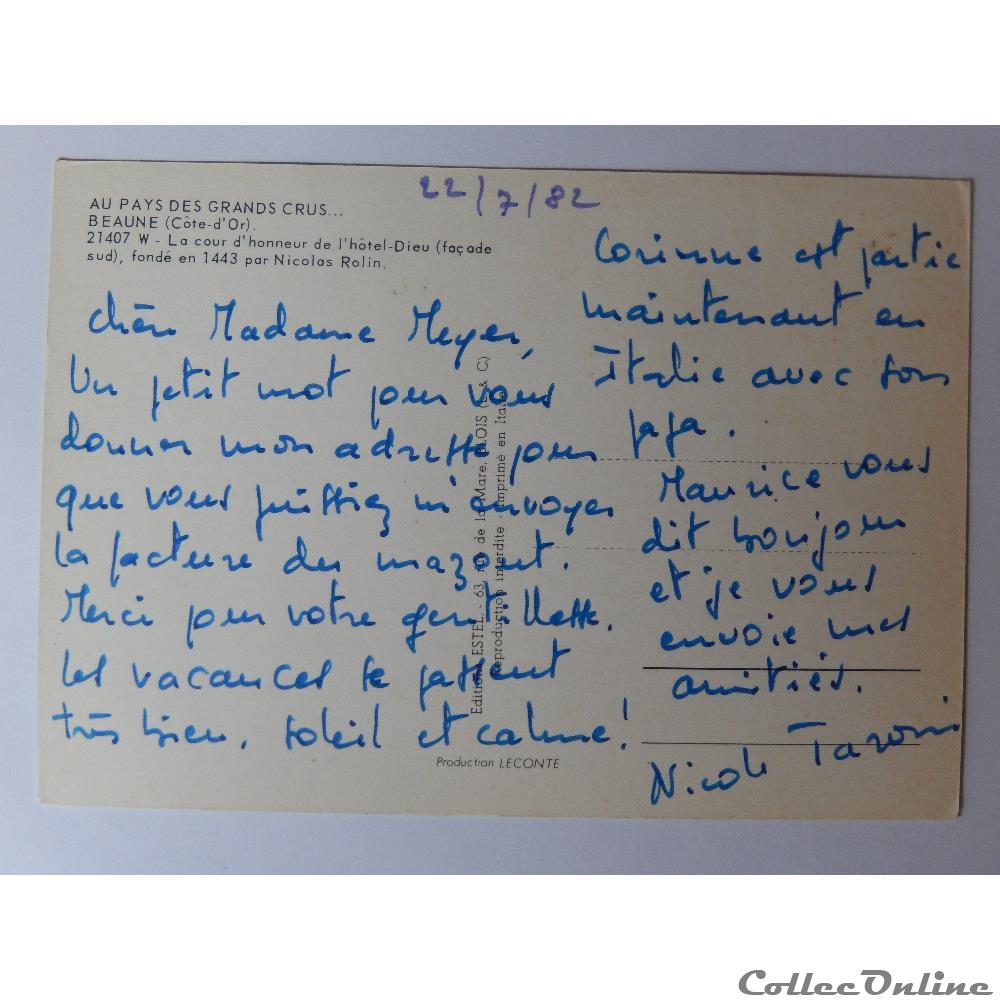 22/7/82
AU PAYS DES GRANDS CRUS...
BEAUNE (Côte-d'Or).
21407 W - La cour d'honneur de l'hôtel-Dieu (façade
sud), fondé en 1443 par Nicolas Rolin.
Chère Madame Meyer,
Un petit mot pour vous
donner mon adresse pour
que vous puissiez m'envoyer
la facture du mazout.
Merci pour votre gentillesse.
Les vacances se passent
très bien, soleil et calme!
Corinne est partie
maintenant en
Italie avec son
papa.
Maurice vous
dit bonjour
et je vous
envoie mes
amitiés.
Nicole
Editions ESTEL - 63, rue de la Mare, BLOIS (L & C)
Reproduction interdite - Imprimé en Italie
Production LECONTE
CollecOnline